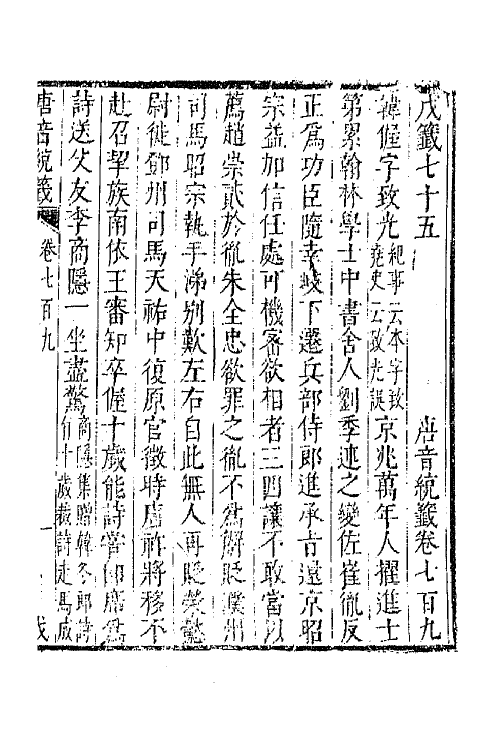 戊籤七十五　唐音統籤卷七百九
韓偓字致光紀事云本字致堯史云致光誤京兆萬年人擢進士
第累翰林學士中書舍人劉季述之變佐崔胤反
正爲功臣隨幸岐下遷兵部侍郎進承旨還京昭
宗益加信任處可機密欲相者三四讓不敢當以
薦趙崇貳於胤朱全忠欲罪之胤不爲解貶濮州
司馬昭宗執手涕别歎左右自此無人再貶榮懿
尉徙鄧州司馬天祐中復原官徵時唐祚將移不
赴召挈族南依王審知卒偓十歲能詩嘗即席爲
詩送父友李商隱一坐盡驚商隱集贈韓冬郎詩有十歲裁詩走馬成
唐音統籤　卷七百九　一　戊